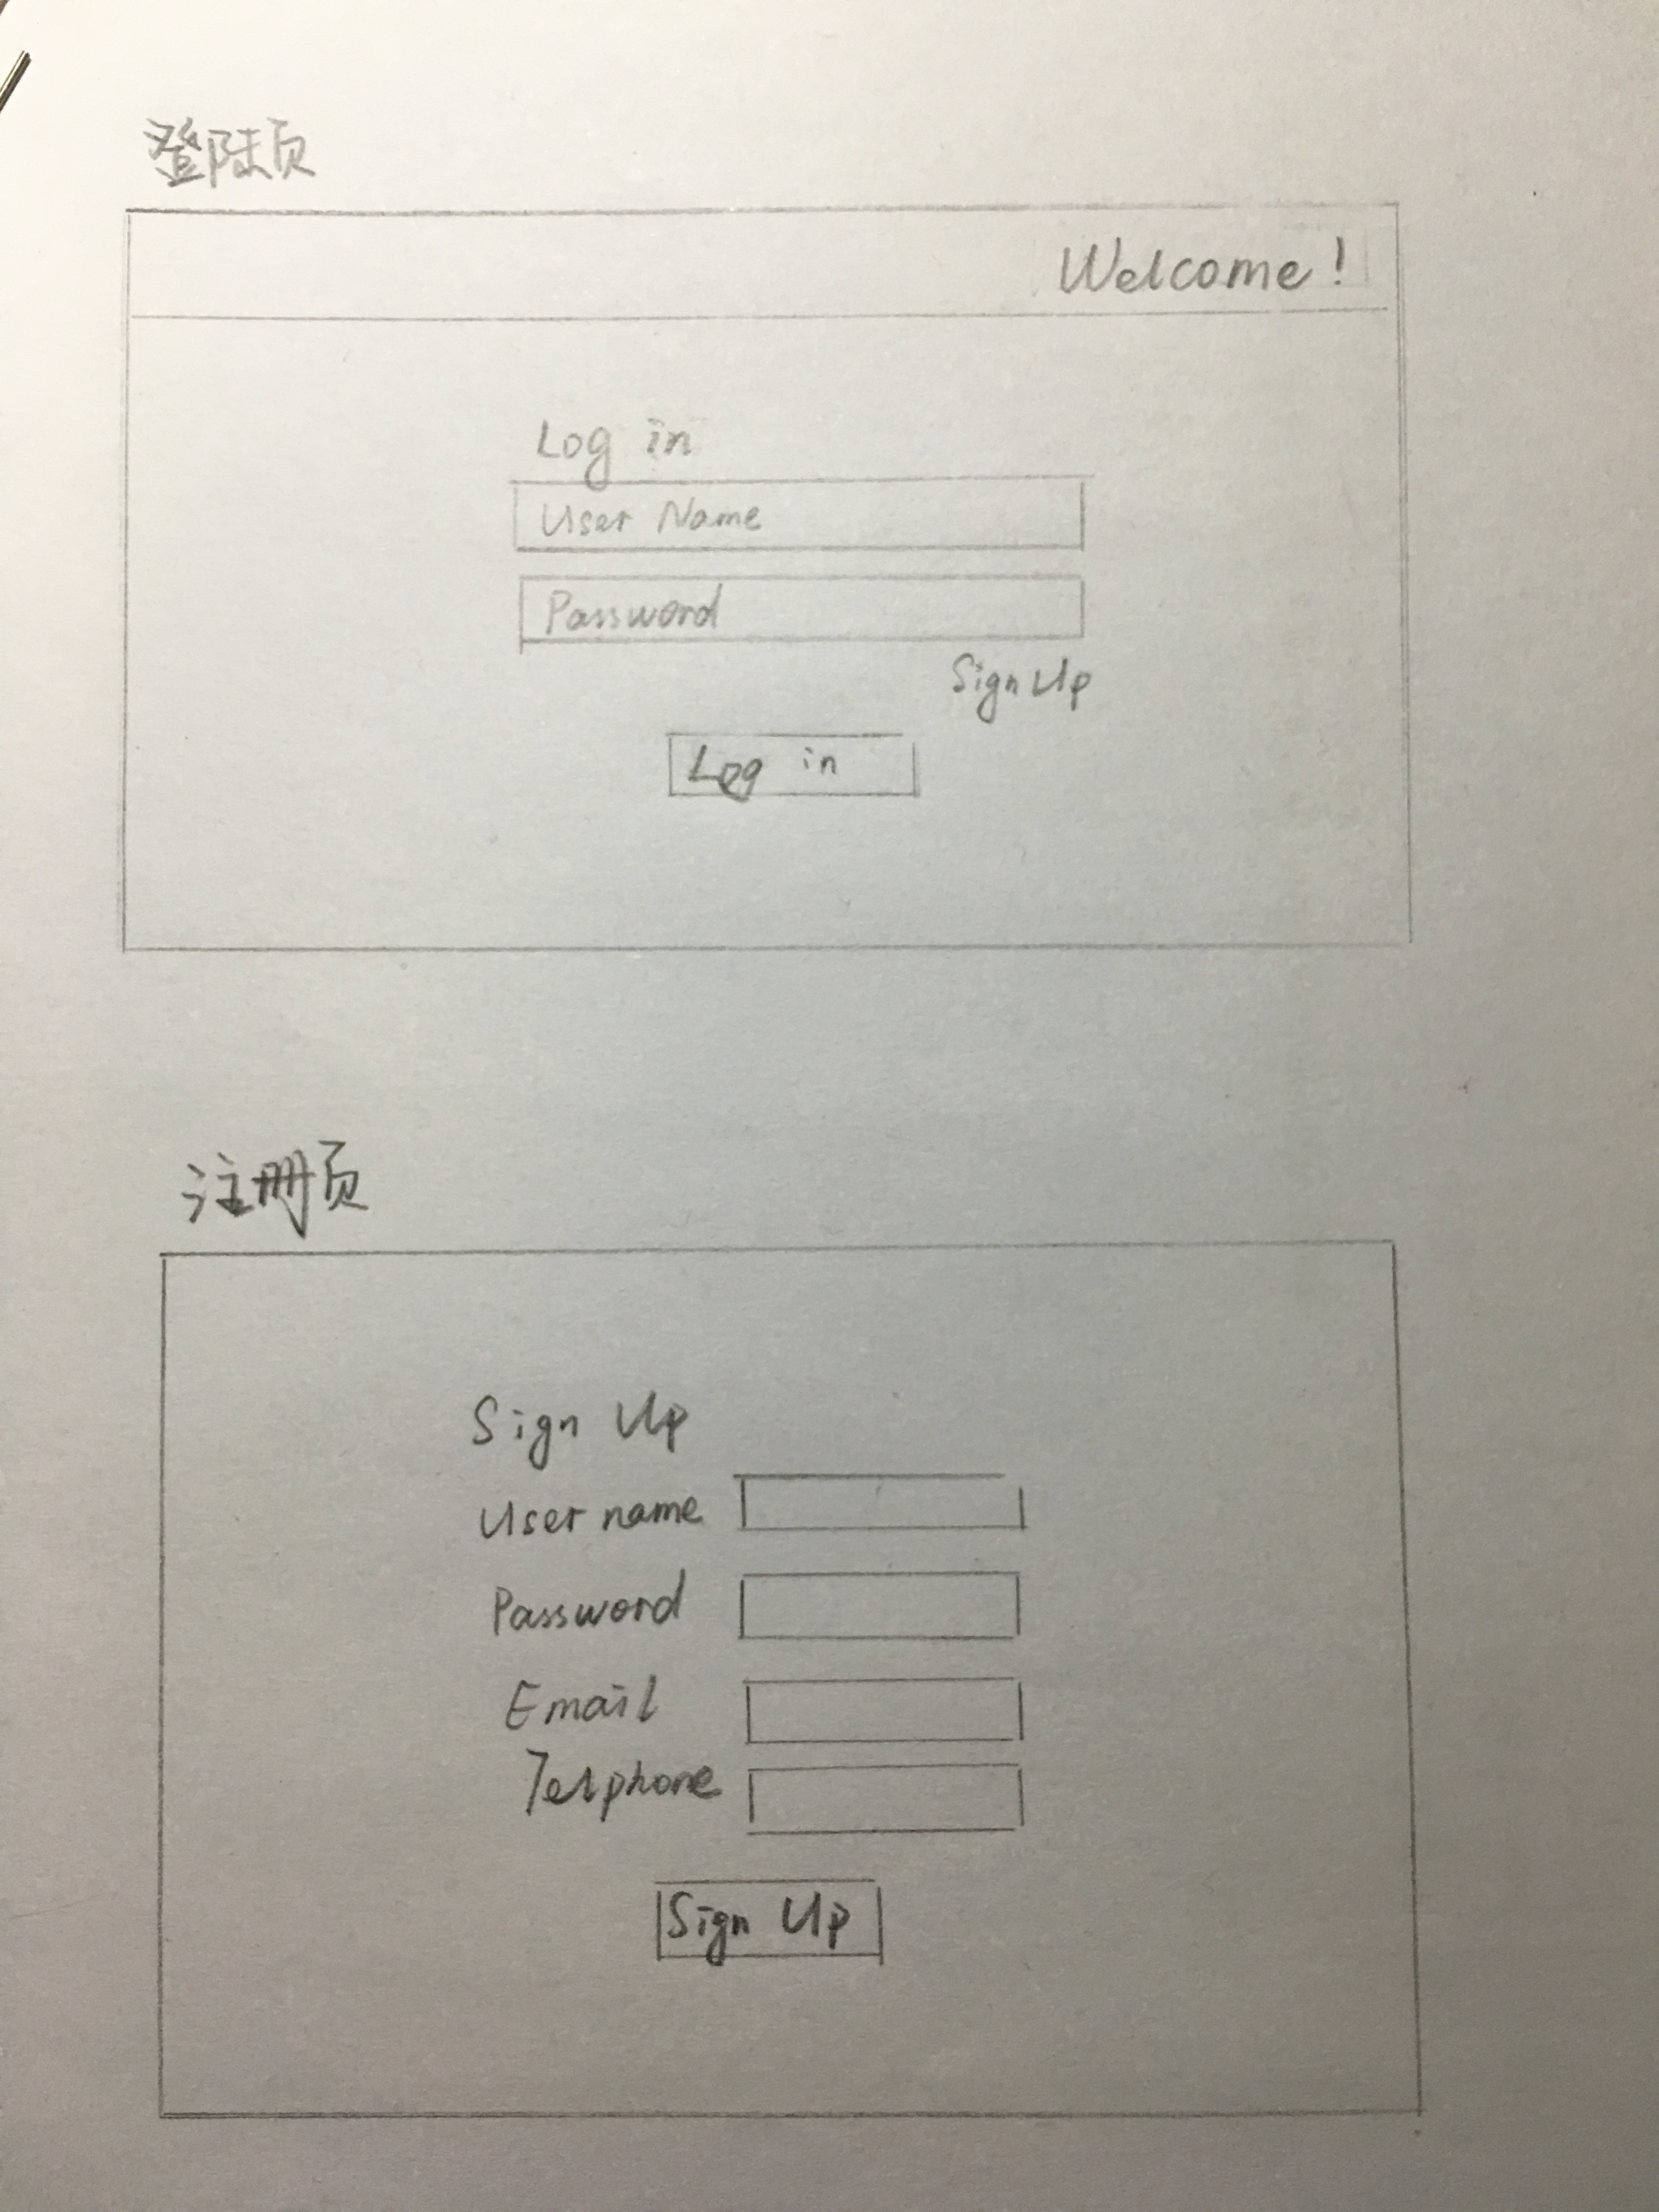 登陆页
Welcome!
Log in
User Name
Password
Sign Up
Log in
注册页
Sign Up
User name
Password
Email
Telphone
Sign Up